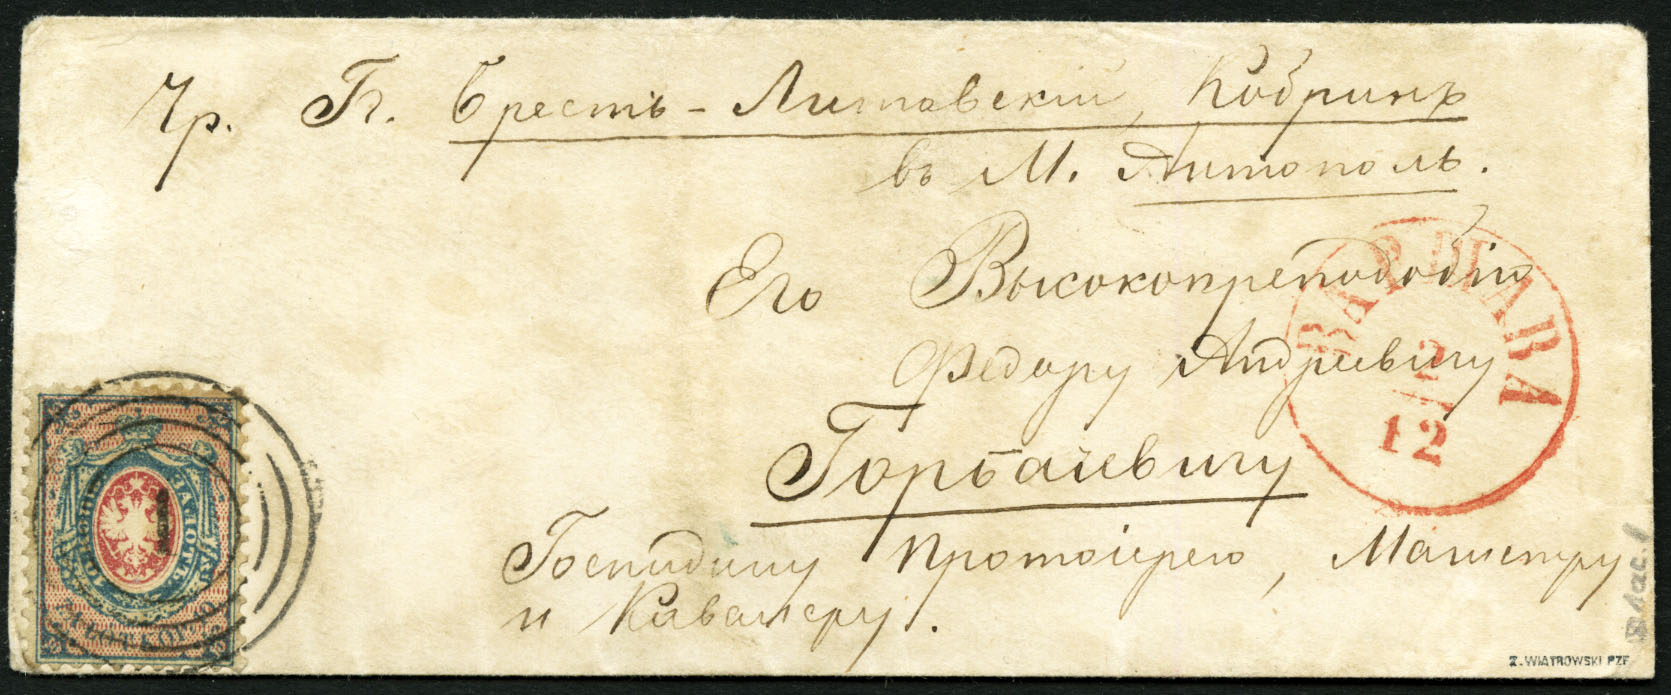 Чр. Гг. Брестъ-Литовскiй, Кобринъ
въ М. Антополь.
Его Высокопреподобiю
Федору Андреевичу
Горбачевичу
Господину Протоiерею, Магистру
и Кавалеру.
ВАРШАВА
2
12
1
ЗАЛОТЪ
Z. WIATROWSKI PZF